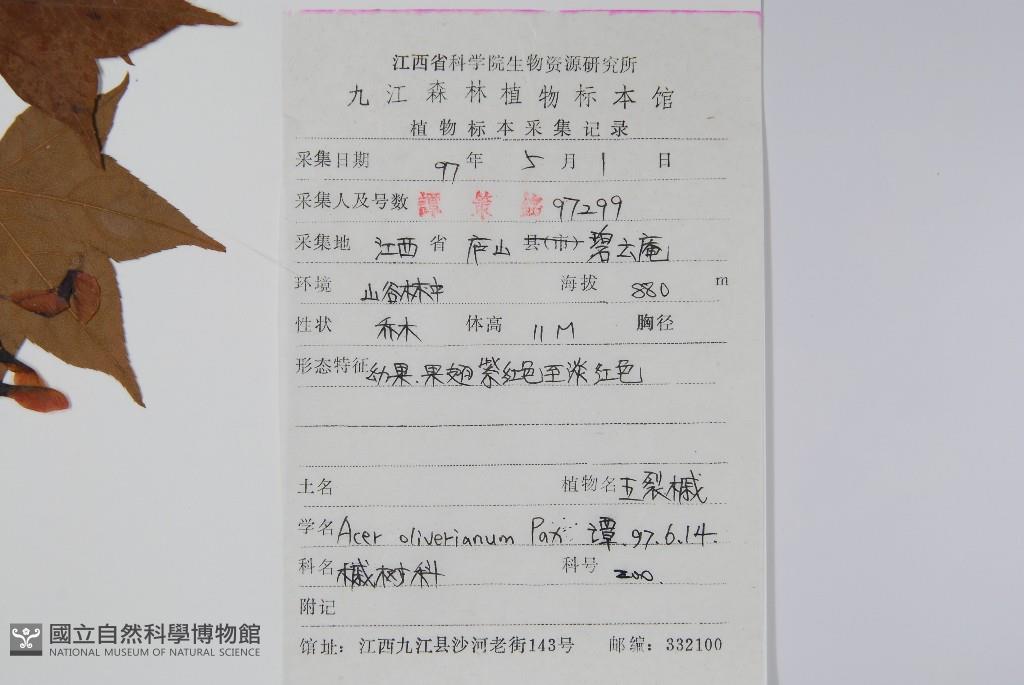 江西省科学院生物资源研究所
九江森林植物标本馆
植物标本采集记录
采集日期 97 年 5 月 1 日
采集人及号数 譚策铭 97299
采集地 江西 省 庐山 县(市) 碧云庵
环境 山谷林中 海拔 880 m
性状 乔木 体高 11 M 胸径
形态特征 幼果.果翅紫红色至淡红色
土名 植物名 五裂槭
学名 Acer oliverianum Pax 谭.97.6.14.
科名 槭树科 科号 200.
附记
馆址: 江西九江县沙河老街143号 邮编: 332100
國立自然科學博物館
NATIONAL MUSEUM OF NATURAL SCIENCE